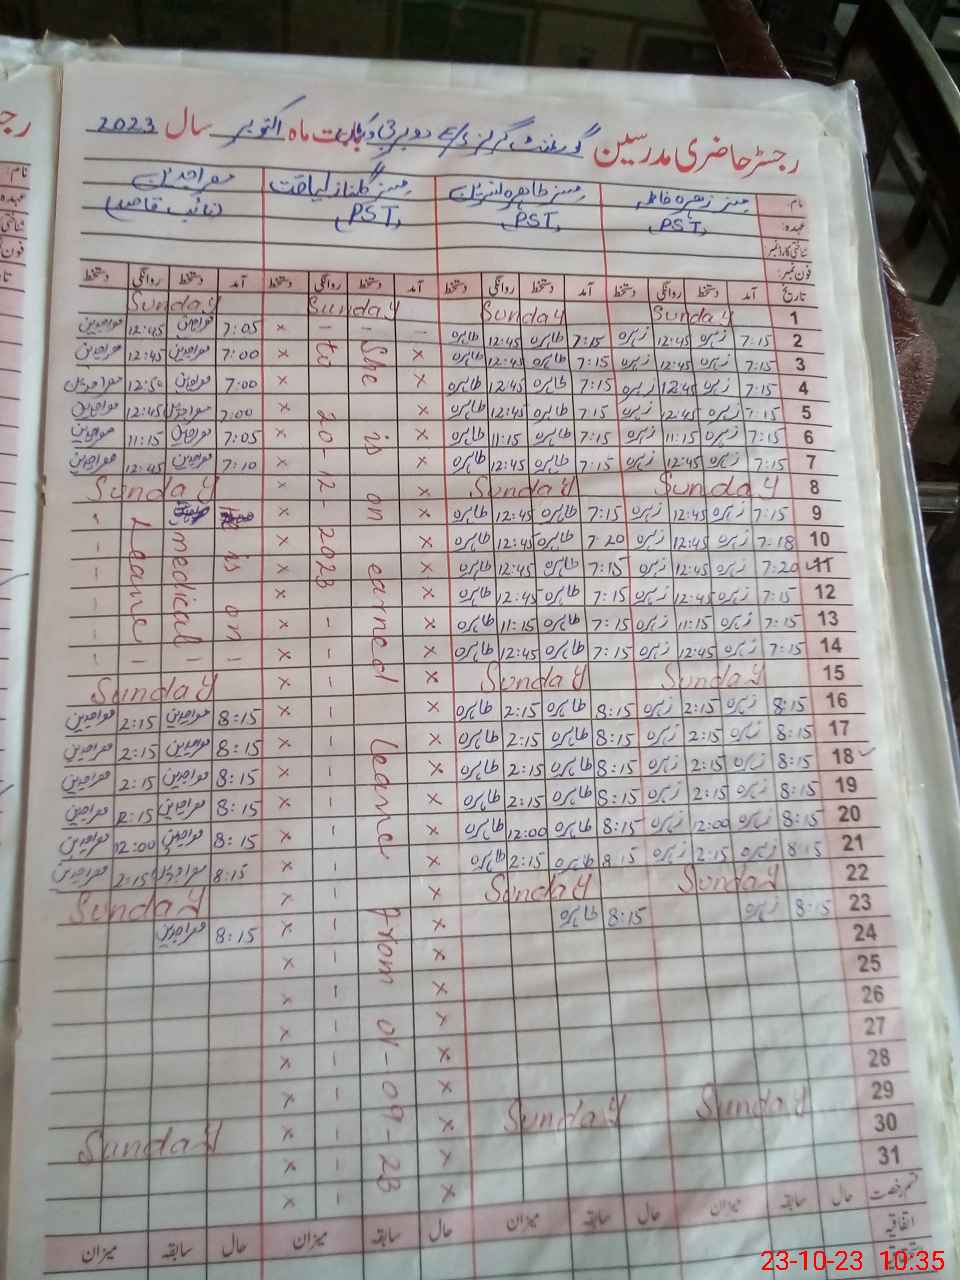 رجسٹر حاضری مدرسین گورنمنٹ گرلز بابت ماہ اکتوبر سال 2023
نام: مسز زہرہ فاطمہ مسز طاہرہ مسز گلناز لیاقت
عہدہ: (PST) (PST) (PST) (نائب قاصد)
شناختی کارڈ نمبر:
فون نمبر:
تاریخ آمد دستخط روانگی دستخط آمد دستخط روانگی دستخط آمد دستخط روانگی دستخط آمد دستخط روانگی دستخط
1 Sunday Sunday Sunday Sunday
2 7:15 زہرہ 12:45 زہرہ 7:15 طاہرہ 12:45 طاہرہ - - - × 7:05 12:45
3 7:15 زہرہ 12:45 زہرہ 7:15 طاہرہ 12:45 طاہرہ × × 7:00 12:45
4 7:15 زہرہ 12:45 زہرہ 7:15 طاہرہ 12:45 طاہرہ × × 7:00 12:50
5 7:15 زہرہ 12:45 زہرہ 7:15 طاہرہ 12:45 طاہرہ × × 7:00 12:45
6 7:15 زہرہ 11:15 زہرہ 7:15 طاہرہ 11:15 طاہرہ × × 7:05 11:15
7 7:15 زہرہ 12:45 زہرہ 7:15 طاہرہ 12:45 طاہرہ × × 7:10 12:45
8 Sunday Sunday × × Sunday
9 7:15 زہرہ 12:45 زہرہ 7:15 طاہرہ 12:45 طاہرہ × ×
10 7:18 زہرہ 12:45 زہرہ 7:20 طاہرہ 12:45 طاہرہ × ×
11 7:20 زہرہ 12:45 زہرہ 7:15 طاہرہ 12:45 طاہرہ × ×
12 7:15 زہرہ 12:45 زہرہ 7:15 طاہرہ 12:45 طاہرہ × ×
13 7:15 زہرہ 11:15 زہرہ 7:15 طاہرہ 11:15 طاہرہ × - ×
14 7:15 زہرہ 12:45 زہرہ 7:15 طاہرہ 12:45 طاہرہ × - × - - -
15 Sunday Sunday × - × Sunday
16 8:15 زہرہ 2:15 زہرہ 8:15 طاہرہ 2:15 طاہرہ × - × 8:15 2:15
17 8:15 زہرہ 2:15 زہرہ 8:15 طاہرہ 2:15 طاہرہ × - × 8:15 2:15
18 8:15 زہرہ 2:15 زہرہ 8:15 طاہرہ 2:15 طاہرہ × - × 8:15 2:15
19 8:15 زہرہ 2:15 زہرہ 8:15 طاہرہ 2:15 طاہرہ × - × 8:15 2:15
20 8:15 زہرہ 12:00 زہرہ 8:15 طاہرہ 12:00 طاہرہ × - × 8:15 12:00
21 8:15 زہرہ 2:15 زہرہ 8:15 طاہرہ 2:15 طاہرہ × - × 8:15 2:15
22 Sunday Sunday × - × Sunday
23 8:15 زہرہ 8:15 طاہرہ × - × 8:15
24 × - ×
25 × - ×
26 × - ×
27 × - ×
28 × - ×
29 Sunday Sunday × - × Sunday
30 × - ×
31 × - ×
She is on earned leanve from 01-09-23
to 20-12-2023
is on
medicial
Leanve
قسم رخصت حال سابقہ میزان حال سابقہ میزان حال سابقہ میزان حال سابقہ میزان
اتفاقیہ
23-10-23 10:35